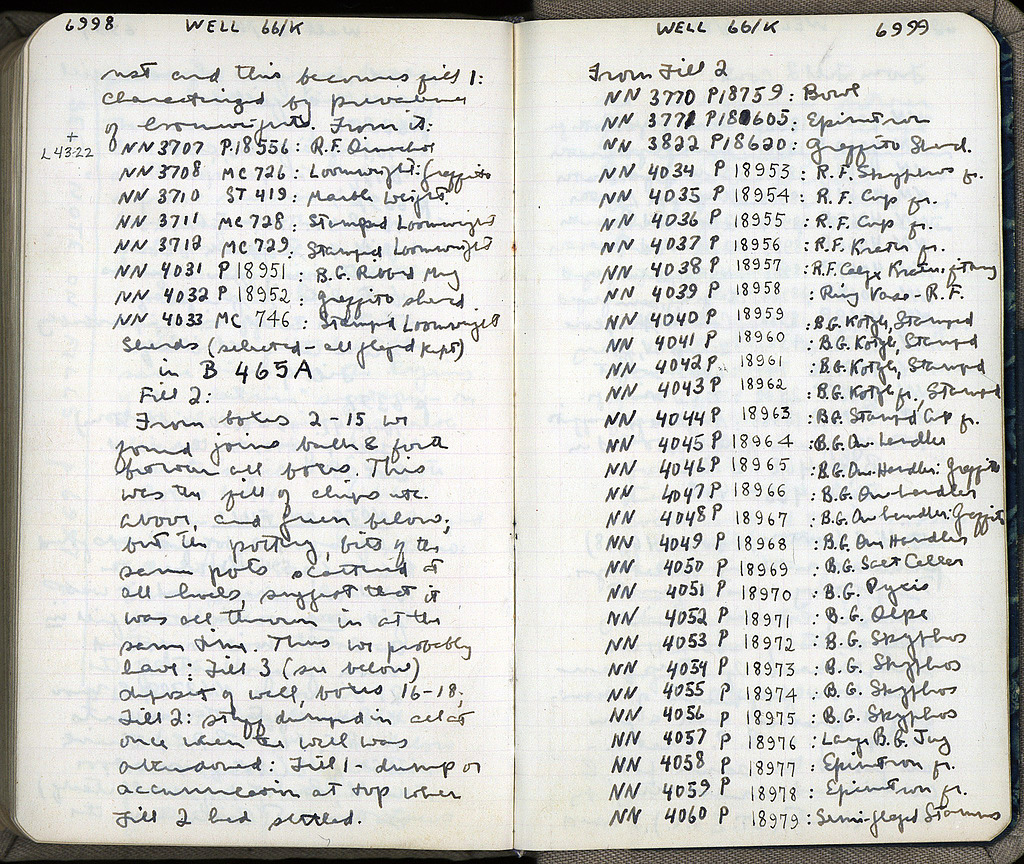 6998 WELL 66/K
not and this becomes fill 1:
characterized by prevalence
of loomweights. From it:
+
L 4322
NN 3707 P.18556: R.F. Oinochoe
NN 3708 MC 726: Loomweight: Graffito
NN 3710 ST 419: Marble Weight.
NN 3711 MC 728: Stamped Loomweight
NN 3712 MC 729: Stamped Loomweight
NN 4031 P 18951: B.G. Ribbed Mug
NN 4032 P 18952: Graffito sherd
NN 4033 MC 746: Stamped Loomweight
Sherds (selected - all glazed kept)
in B 465A
Fill 2:
From boxes 2-15 we
found joins back & forth
from all boxes. This
was the fill of chips etc.
above, and below;
but the pottery, bits of the
same pots scattered at
all levels, suggest that it
was all thrown in at the
same time. Thus we probably
have: Fill 3 (see below)
deposit of well, boxes, 16-18;
Fill 2: stuff dumped in all at
once when the well was
abandoned: Fill 1 - dump or
accumulation at top when
Fill 2 had settled.
WELL 66/K 6999
From Fill 2
NN 3770 P18759: Bowl
NN 3771 P18605: Epinetron
NN 3822 P18620: Graffito Sherd.
NN 4034 P 18953: R.F. Skyphos fr.
NN 4035 P 18954: R.F. Cup fr.
NN 4036 P 18955: R.F. Cup fr.
NN 4037 P 18956: R.F. Krater fr.
NN 4038 P 18957: R.F. Calyx Krater:
NN 4039 P 18958: Ring Vase - R.F.
NN 4040 P 18959: B.G. Kotyle, Stamped
NN 4041 P 18960: B.G. Kotyle, Stamped
NN 4042 P. 18961: B.G. Kotyle, Stamped
NN 4043 P 18962: B.G. Kotyle fr., Stamped
NN 4044 P 18963: B.G. Stamped Cup fr.
NN 4045 P 18964: B.G. One handler
NN 4046 P 18965: B.G. One-Handler: Graffito
NN 4047 P 18966: B.G. One-handler
NN 4048 P 18967: B.G. One handler: Graffito
NN 4049 P 18968: B.G. One Handler
NN 4050 P 18969: B.G. Salt Cellar
NN 4051 P 18970: B.G. Pyxis
NN 4052 P 18971: B.G. Olpe
NN 4053 P 18972: B.G. Skyphos
NN 4054 P 18973: B.G. Skyphos
NN 4055 P 18974: B.G. Skyphos
NN 4056 P 18975: B.G. Skyphos
NN 4057 P 18976: Large B.G. Jug
NN 4058 P 18977: Epinetron fr.
NN 4059 P 18978: Epinetron fr.
NN 4060 P 18979: Semi-glazed Stamnos